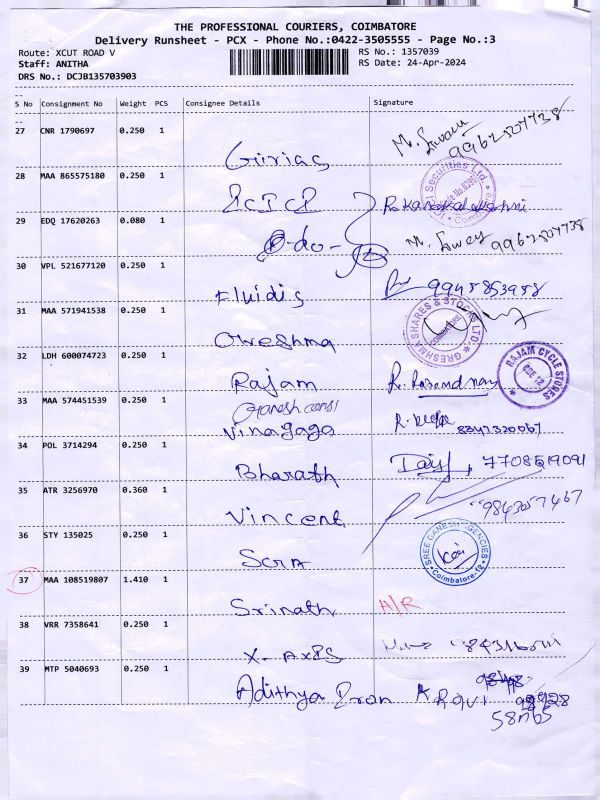 THE PROFESSIONAL COURIERS, COIMBATORE
Delivery Runsheet - PCX - Phone No.:0422-3505555 - Page No.:3
Route: XCUT ROAD V
RS No.: 1357039
Staff: ANITHA
RS Date: 24-Apr-2024
DRS No.: DCJB135703903
S No Consignment No Weight PCS Consignee Details Signature
27 CNR 1790697 0.250 1
Girias
28 MAA 865575180 0.250 1
ICICI
29 EDQ 17620263 0.080 1
-do-
30 VPL 521677120 0.250 1
Fluidis 9945853988
31 MAA 571941538 0.250 1
GRESHMA SHARES & STOCKS LTD
COIMBATORE
32 LDH 600074723 0.250 1
Rajam
RAJAM CYCLE STORES
CBE 12
33 MAA 574451539 0.250 1
Ganesh
Vinayaga
34 POL 3714294 0.250 1
Bharath
35 ATR 3256970 0.360 1
Vincent 9843057467
36 STY 135025 0.250 1
SREE GANESH AGENCIES
Coimbatore-12
37 MAA 108519807 1.410 1
Srinath A/R
38 VRR 7358641 0.250 1
X-AXIS
39 MTP 5040693 0.250 1
Adithya Iron K Ravi